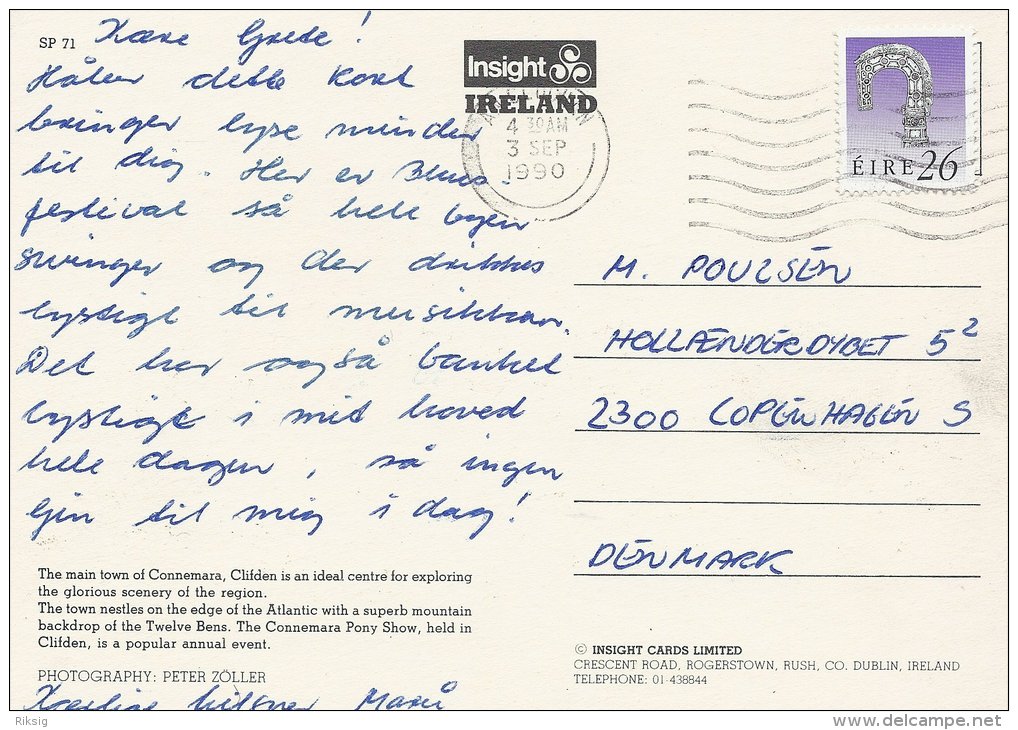 SP 71
Kære Grete!
Håber dette kort
bringer lyse minder
til dig. Her er Blues-
festival så hele byen
swinger og der drikkes
lystigt til musikken.
Det har også banket
lystigt i mit hoved
hele dagen, så ingen
Gin til mig i dag!
The main town of Connemara, Clifden is an ideal centre for exploring
the glorious scenery of the region.
The town nestles on the edge of the Atlantic with a superb mountain
backdrop of the Twelve Bens. The Connemara Pony Show, held in
Clifden, is a popular annual event.
PHOTOGRAPHY: PETER ZÖLLER
Kærlige hilsner
Insight
IRELAND
4 30 AM
3 SEP
1990
ÉIRE 26
M. POULSEN
HOLLÆNDERDYBET 5²
2300 COPENHAGEN S
DENMARK
© INSIGHT CARDS LIMITED
CRESCENT ROAD, ROGERSTOWN, RUSH, CO. DUBLIN, IRELAND
TELEPHONE: 01-438844
Riksig
www.delcampe.net